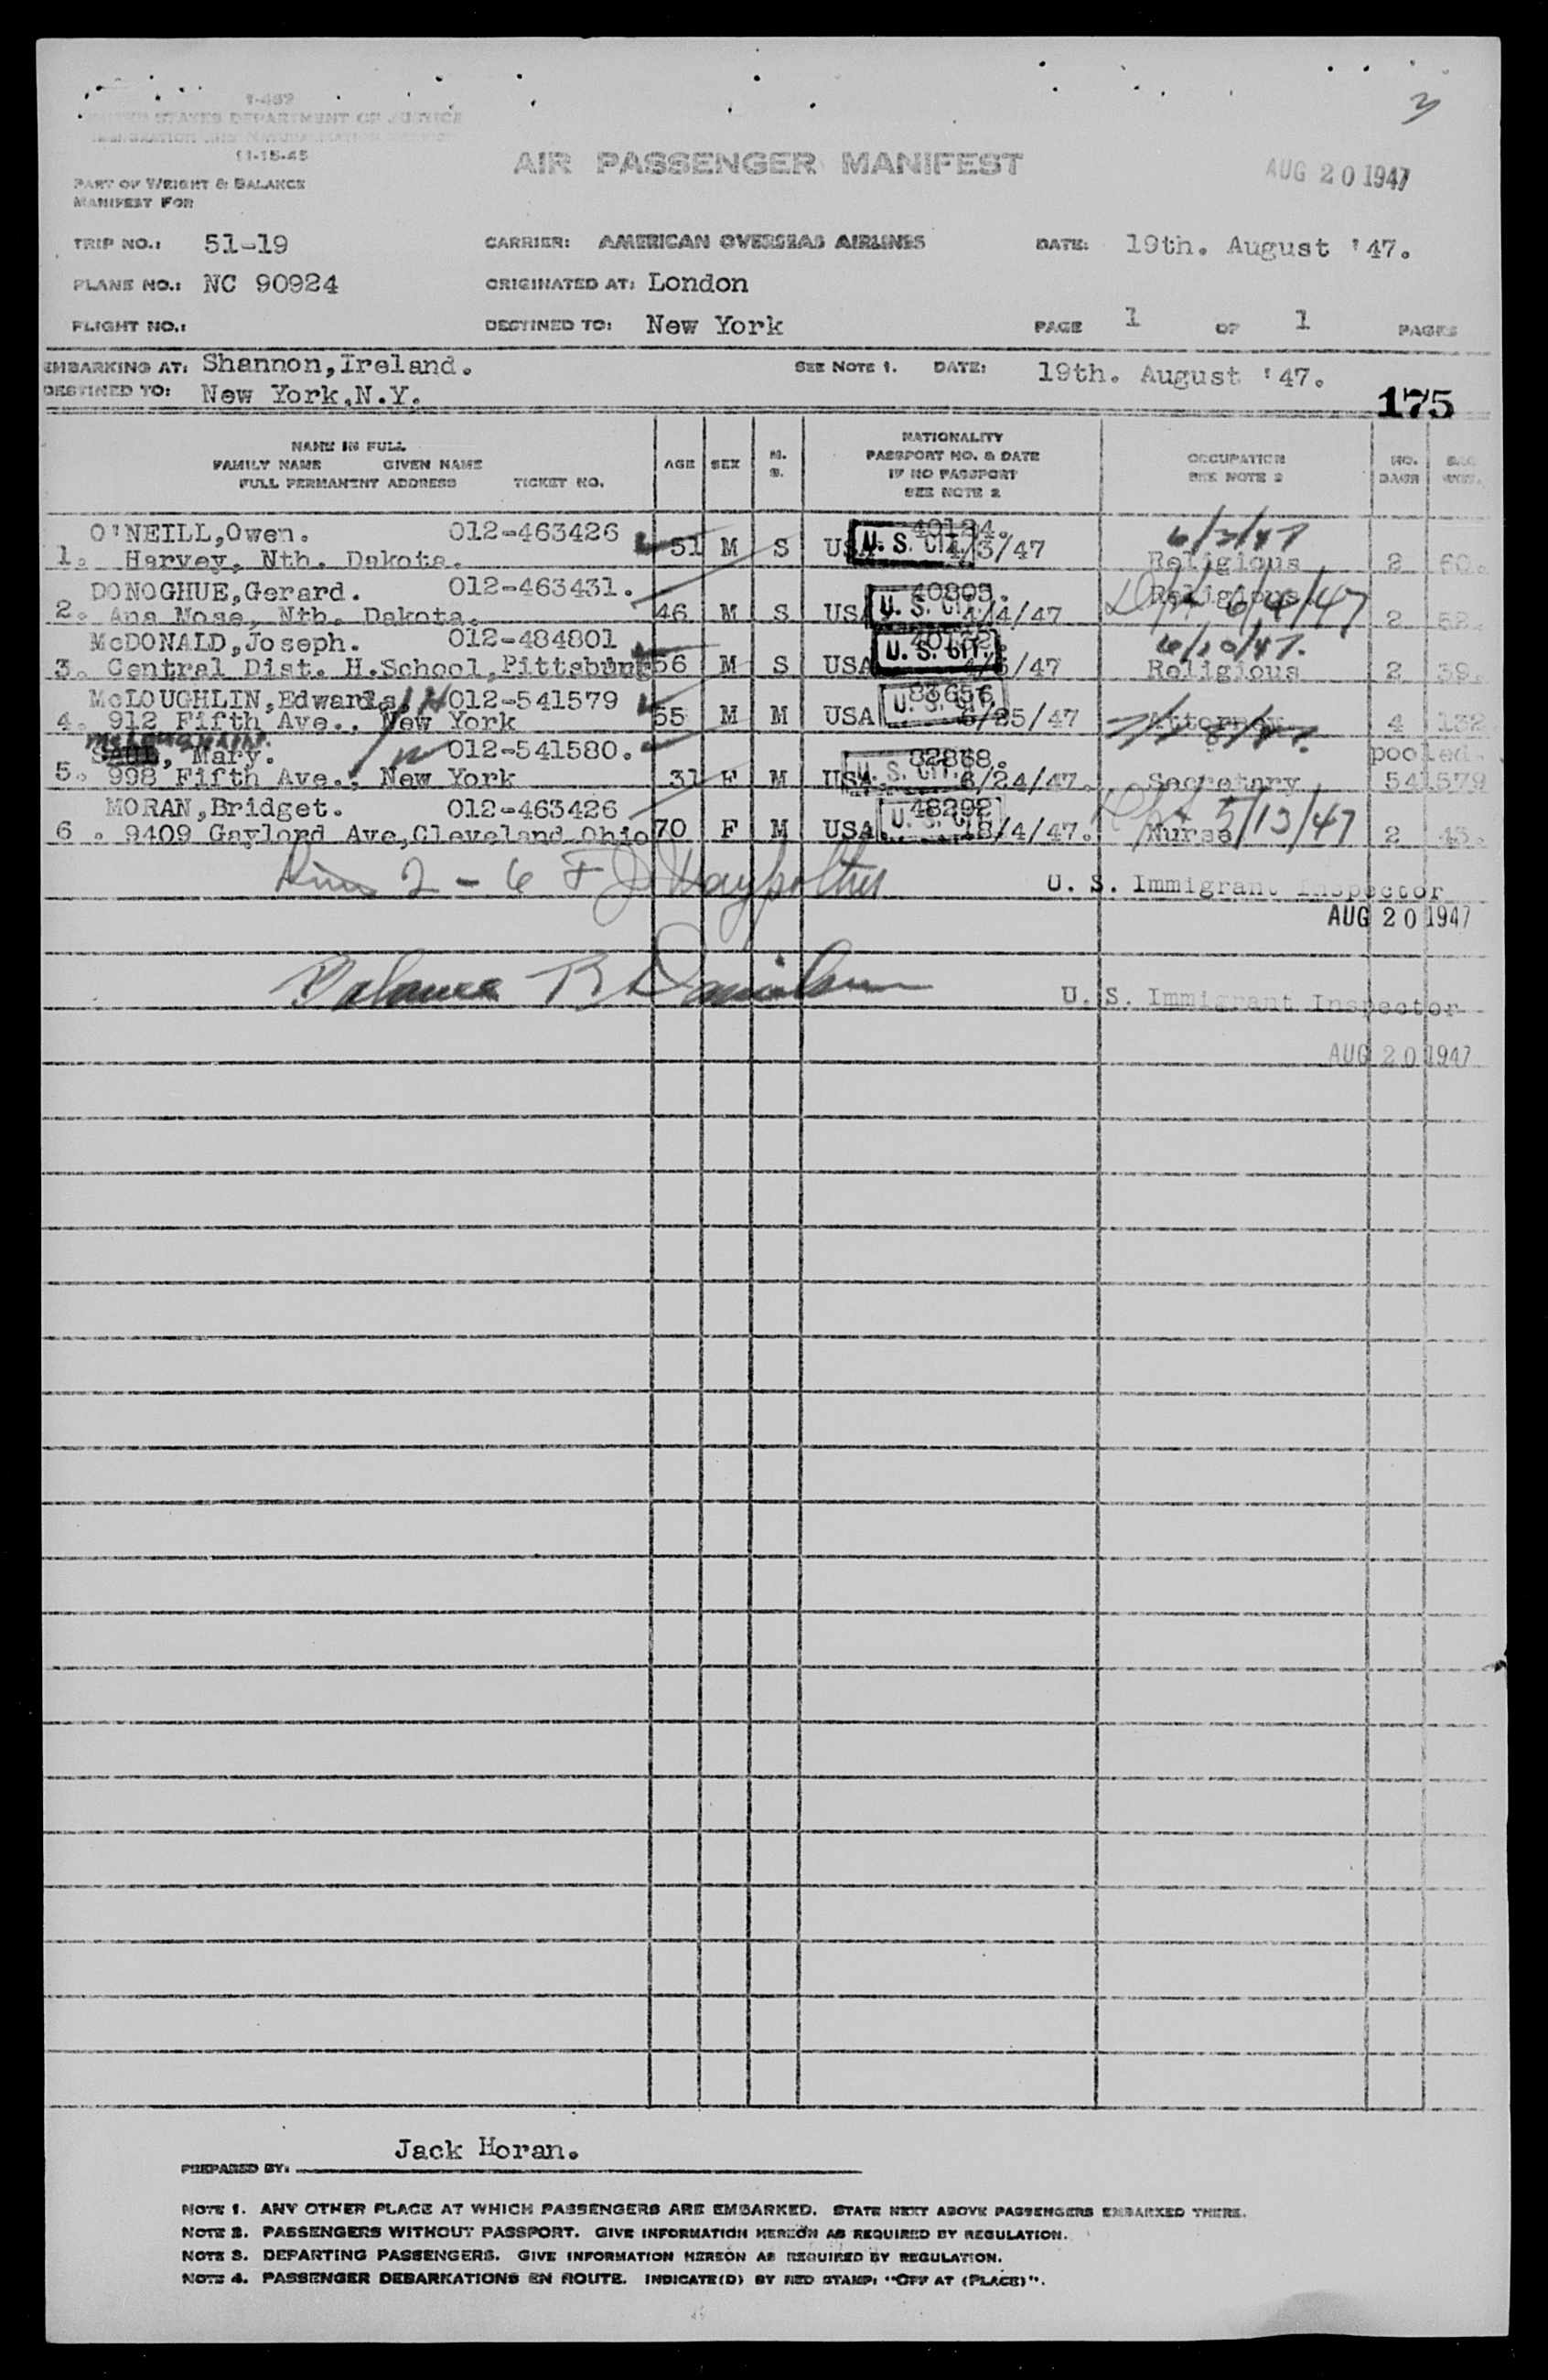 3
I-467
UNITED STATES DEPARTMENT OF JUSTICE
IMMIGRATION AND NATURALIZATION SERVICE
11-15-45
AIR PASSENGER MANIFEST
AUG 20 1947
PART OF WEIGHT & BALANCE
MANIFEST FOR
TRIP NO.: 51-19 CARRIER: AMERICAN OVERSEAS AIRLINES DATE: 19th. August '47.
PLANE NO.: NC 90924 ORIGINATED AT: London
FLIGHT NO.: DESTINED TO: New York PAGE 1 OF 1 PAGES
EMBARKING AT: Shannon,Ireland. SEE NOTE 1. DATE: 19th. August '47.
DESTINED TO: New York,N.Y. 175
NAME IN FULL
FAMILY NAME GIVEN NAME
FULL PERMANENT ADDRESS TICKET NO.
AGE SEX M. S.
NATIONALITY
PASSPORT NO. & DATE
IF NO PASSPORT
SEE NOTE 2
OCCUPATION
SEE NOTE 2
NO. BAGS BAG WGT.
O'NEILL,Owen. 012-463426 40124. 6/3/47
1. Harvey, Nth. Dakota. 51 M S USA U. S. CIT. 4/3/47 Religious 2 60.
DONOGHUE,Gerard. 012-463431. 40803. Religious.
2. Ana Mose, Nth. Dakota. 46 M S USA U. S. CIT. 4/4/47 6/4/47 2 52.
McDONALD,Joseph. 012-484801 6/10/47.
3. Central Dist. H.School,Pittsburg 56 M S USA U. S. CIT. /47 Religious 2 39.
McLOUGHLIN,Edward 012-541579 83656
4. 912 Fifth Ave., New York 55 M M USA U. S. CIT. /25/47 Attorney 4 132
McLoughlin.
SAUL, Mary. 012-541580. 82868. pooled.
5. 998 Fifth Ave., New York 31 F M USA U. S. CIT. 6/24/47. Secretary 541579
MORAN,Bridget. 012-463426 48292
6. 9409 Gaylord Ave,Cleveland,Ohio 70 F M USA U. S. CIT. /4/47. Nurse 5/13/47 2 43.
2 - 6 U. S. Immigrant Inspector
AUG 20 1947
Balance U. S. Immigrant Inspector
AUG 20 1947
Jack Horan.
PREPARED BY:
NOTE 1. ANY OTHER PLACE AT WHICH PASSENGERS ARE EMBARKED. STATE NEXT ABOVE PASSENGERS EMBARKED THERE.
NOTE 2. PASSENGERS WITHOUT PASSPORT. GIVE INFORMATION HEREON AS REQUIRED BY REGULATION.
NOTE 3. DEPARTING PASSENGERS. GIVE INFORMATION HEREON AS REQUIRED BY REGULATION.
NOTE 4. PASSENGER DEBARKATIONS EN ROUTE. INDICATE(D) BY RED STAMP: "OFF AT (PLACE)".